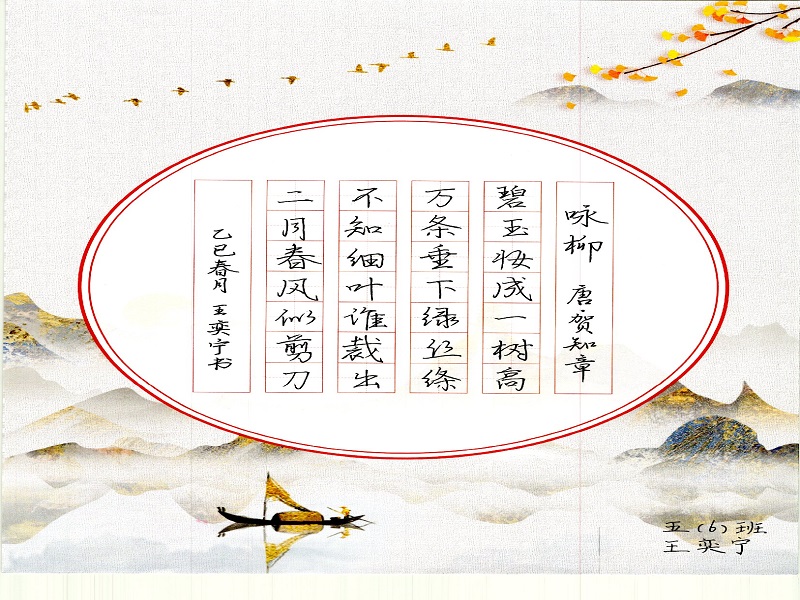 咏柳 唐·贺知章
碧玉妆成一树高
万条垂下绿丝绦
不知细叶谁裁出
二月春风似剪刀
乙巳春月 王奕宁书
五(6)班
王奕宁